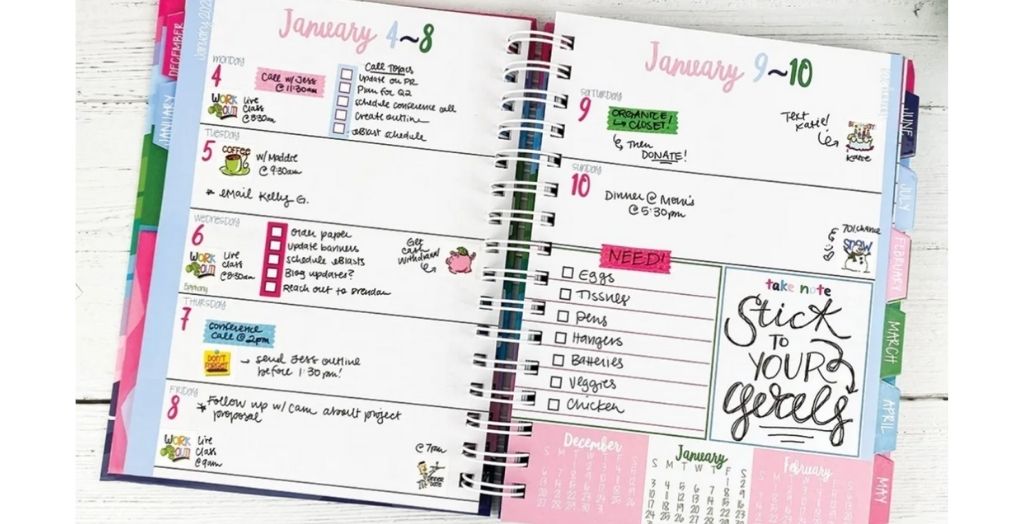 DECEMBER
JANUARY
January 4~8
monday
4
Call w/ Jess
@ 11:30am
WORK
OUT
Live
Class
@ 8:30am
Call Topics
Update on PR
Plan for Q2
schedule conference call
Create outline
eBlast schedule
TUESDAY
5
COFFEE
w/ Maddie
@ 9:30am
* eMail Kelly G.
Wednesday
6
WORK
OUT
Live
Class
@ 8:30am
order paper
update banners
schedule eBlasts
Blog updates?
Reach out to Brendan
Get
Cash
Withdrawl
THURSDAY
7
Conference
Call @ 2pm
DON'T
FORGET
→ send Jess outline
before 1:30pm!
FRIDAY
8
* Follow up w/ Cam about project
proposal
WORK
OUT
Live
Class
@ 9am
@ 7pm
January 9~10
SATURDAY
9
ORGANIZE
↳ CLOSET!
↳ Then
DONATE!
Text
Katie!
Katie
sunday
10
Dinner @ Mom's
@ 5:30pm
70% chance
SNOW
NEED!
Eggs
Tissues
Pens
Hangers
Batteries
Veggies
Chicken
take note
Stick
TO
YOUR
goals
December
January
S M T W T F S
February
JUNE
JULY
FEBRUARY
MARCH
APRIL
MAY